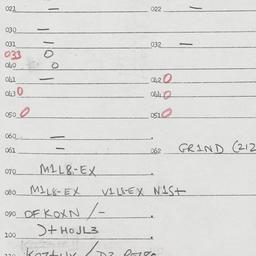 021 — 022 —
030 —
031 — 032 —
033 O
040 O
041 — 042 O
043 O 044 O
050 O 051 O
060 —
061 — 062 GRIND (212
070 M1L8-EX
080 M1L8-EX V1L8-EX N1S+
090 DFKOXN /-
100 )+HOJL3